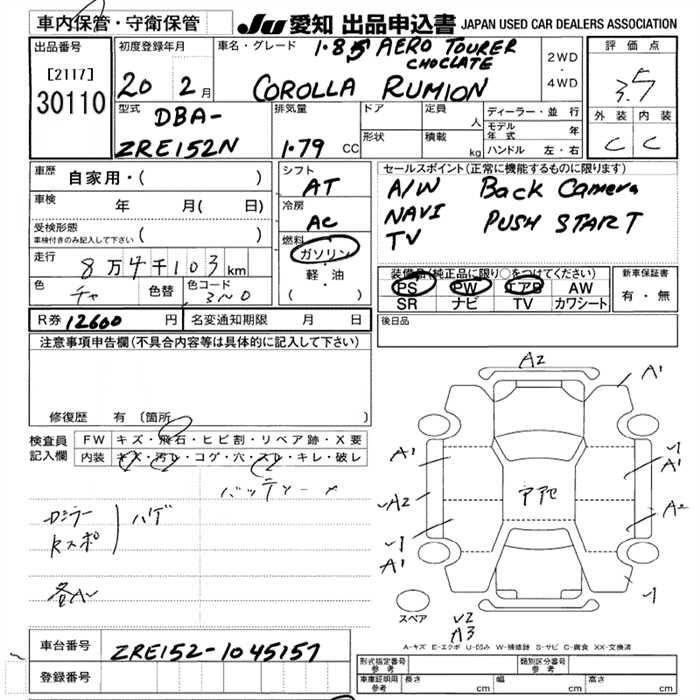 車内保管・守衛保管
JU 愛知 出品申込書 JAPAN USED CAR DEALERS ASSOCIATION
出品番号
[2117]
30110
初度登録年月
20 2月
車名・グレード
1.8S AERO TOURER
CHOCLATE
COROLLA RUMION
2WD
・
4WD
評価点
3.5
外装 内装
C C
型式
DBA-
ZRE152N
排気量
1.79 CC
ドア
定員
人
形状
積載
kg
ディーラー・並行
モデル年式 年
ハンドル 左・右
車歴
自家用・( )
車検
年 月( 日)
受検形態
車検付きのみ記入して下さい ( )
走行
8万4千103km
色
チャ
色替
色コード
3N0
シフト
AT
冷房
AC
燃料
ガソリン
・
軽・油
( )
セールスポイント(正常に機能するものに限ります)
A/W Back Camera
NAVI PUSH START
TV
装備品(純正品に限り○をつけてください)
PS PW エアB AW
SR ナビ TV カワシート
新車保証書
有・無
R券 12600 円
名変通知期限 月 日
後日品
注意事項申告欄(不具合内容等は具体的に記入して下さい)
修復歴 有 〔箇所
検査員
記入欄
FW キズ・飛石・ヒビ割・リペア跡・X要
内装 キズ・汚レ・コゲ・穴・スレ・キレ・破レ
ハゲ
各A
A2
A1
A1
A2
A2
A1
スペア
A3
A-キズ E-エクボ U-凹み W-補修跡 S-サビ C-腐食 XX-交換済
車台番号
ZRE152-1045157
登録番号
形式指定番号
参考
類別区分番号
参考
車庫証明用
参考
長さ cm
幅 cm
高さ cm